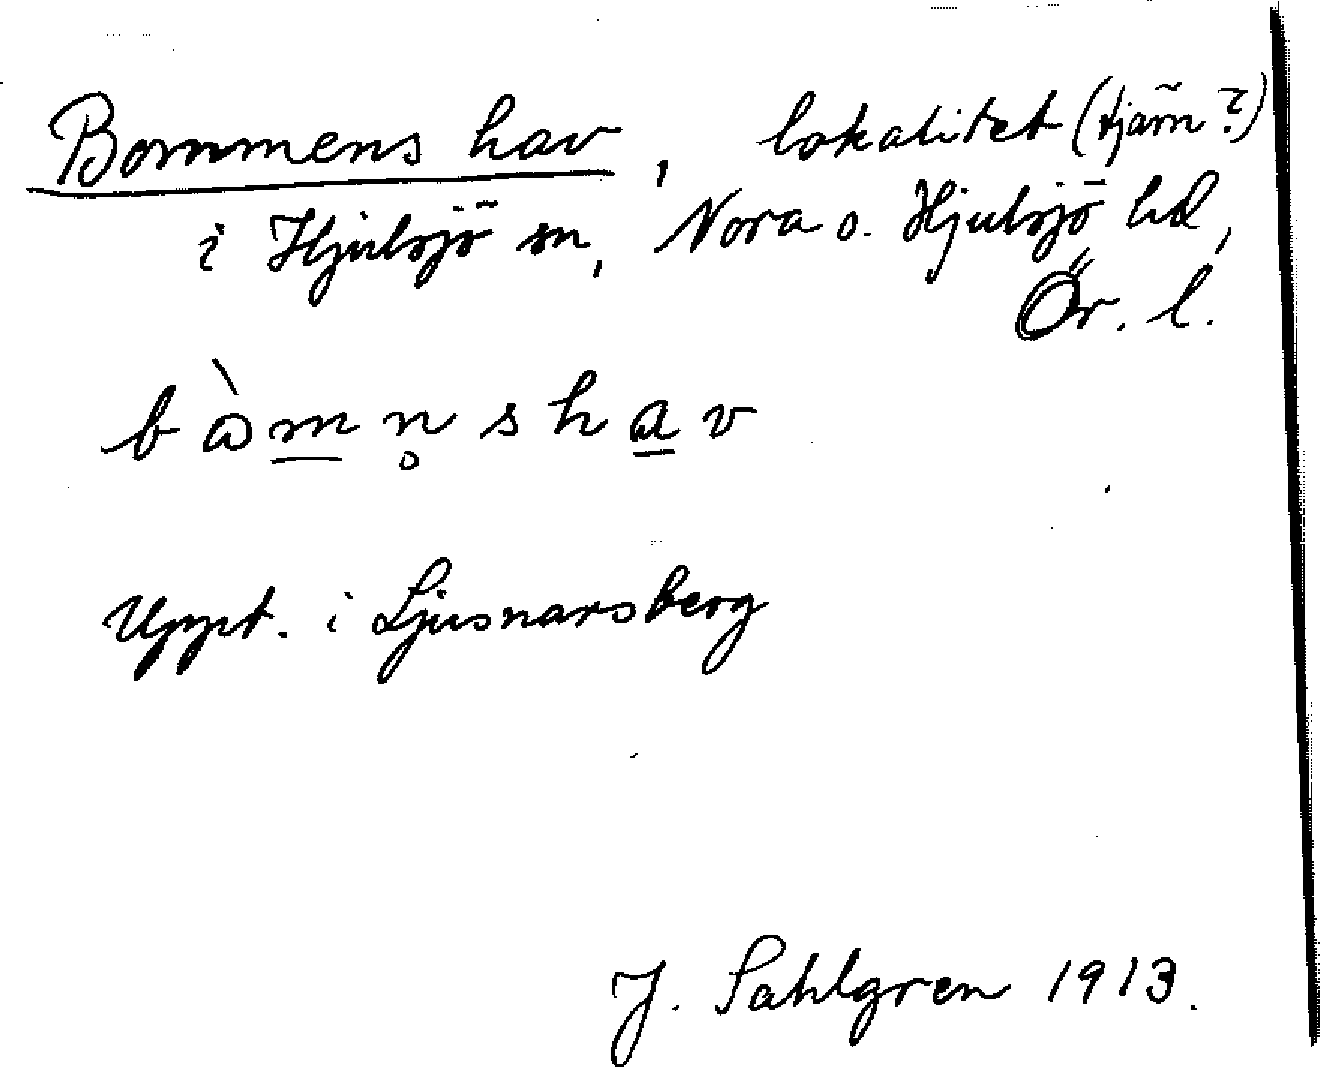 Bommens hav, lokalitet (tjärn?)
i Hjulsjö sn, Nora o. Hjulsjö hd,
Ör. l.
bὼm̲n̥sha̲v
Uppt. i Ljusnarsberg
J. Sahlgren 1913.